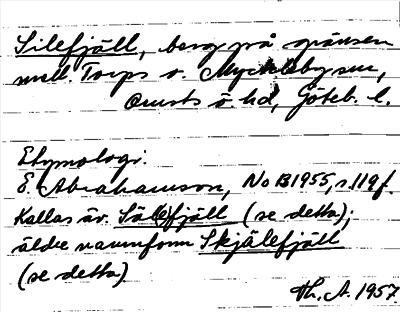 Silefjäll, berg på gränsen
mell. Torps o. Myckleby snr,
Orusts ö. hd, Göteb. l.
Etymologi:
E. Abrahamson, NoB 1955, s. 119 f.
Kallas äv. Säl(e)fjäll (se detta);
äldre namnform Skjälefjäll
(se detta)
Th. A. 1957.